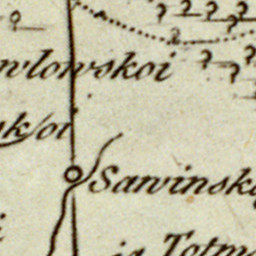 wlowskoi
skſoi
Sawinsko
ia Totm